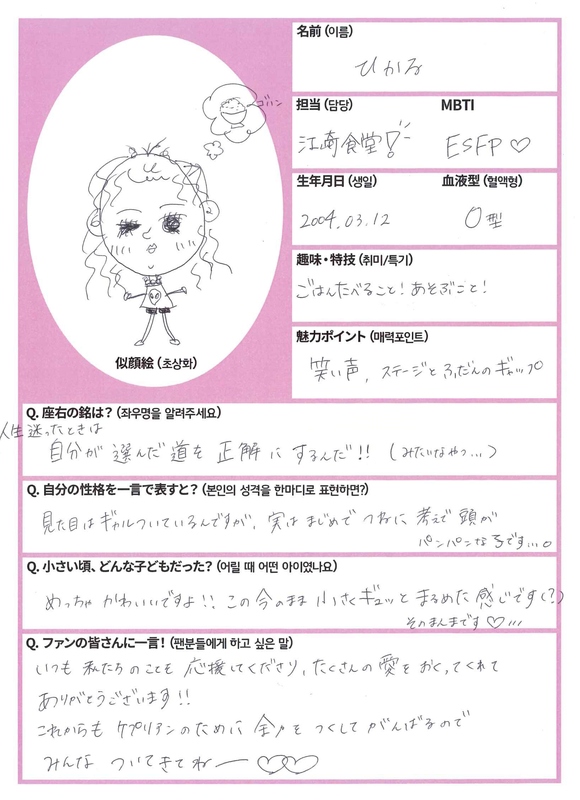 名前 (이름)
ひかる
担当 (담당)
江崎食堂!
MBTI
ESFP♡
生年月日 (생일)
2004.03.12
血液型 (혈액형)
O型
趣味・特技 (취미/특기)
ごはんたべること!あそぶこと!
魅力ポイント (매력포인트)
笑い声, ステージとふだんのギャップ
ゴハン
似顔絵 (초상화)
Q. 座右の銘は? (좌우명을 알려주세요)
人生迷ったときは
自分が選んだ道を正解にするんだ!! (みたいなやつ...)
Q. 自分の性格を一言で表すと? (본인의 성격을 한마디로 표현하면?)
見た目はギャルついているんですが、実はまじめでつねに考えて頭が
パンパンな子です...。
Q. 小さい頃、どんな子どもだった? (어릴 때 어떤 아이였나요)
めっちゃかわいいですよ!! この今のまま小さくギュッとまるめた感じです(?)
そのまんまです♡...
Q. ファンの皆さんに一言! (팬분들에게 하고 싶은 말)
いつも私たちのことも応援してくださり、たくさんの愛をおくってくれて
ありがとうございます!!
これからもケプリアンのために全力をつくしてがんばるので
みんなついてきてねー♡♡